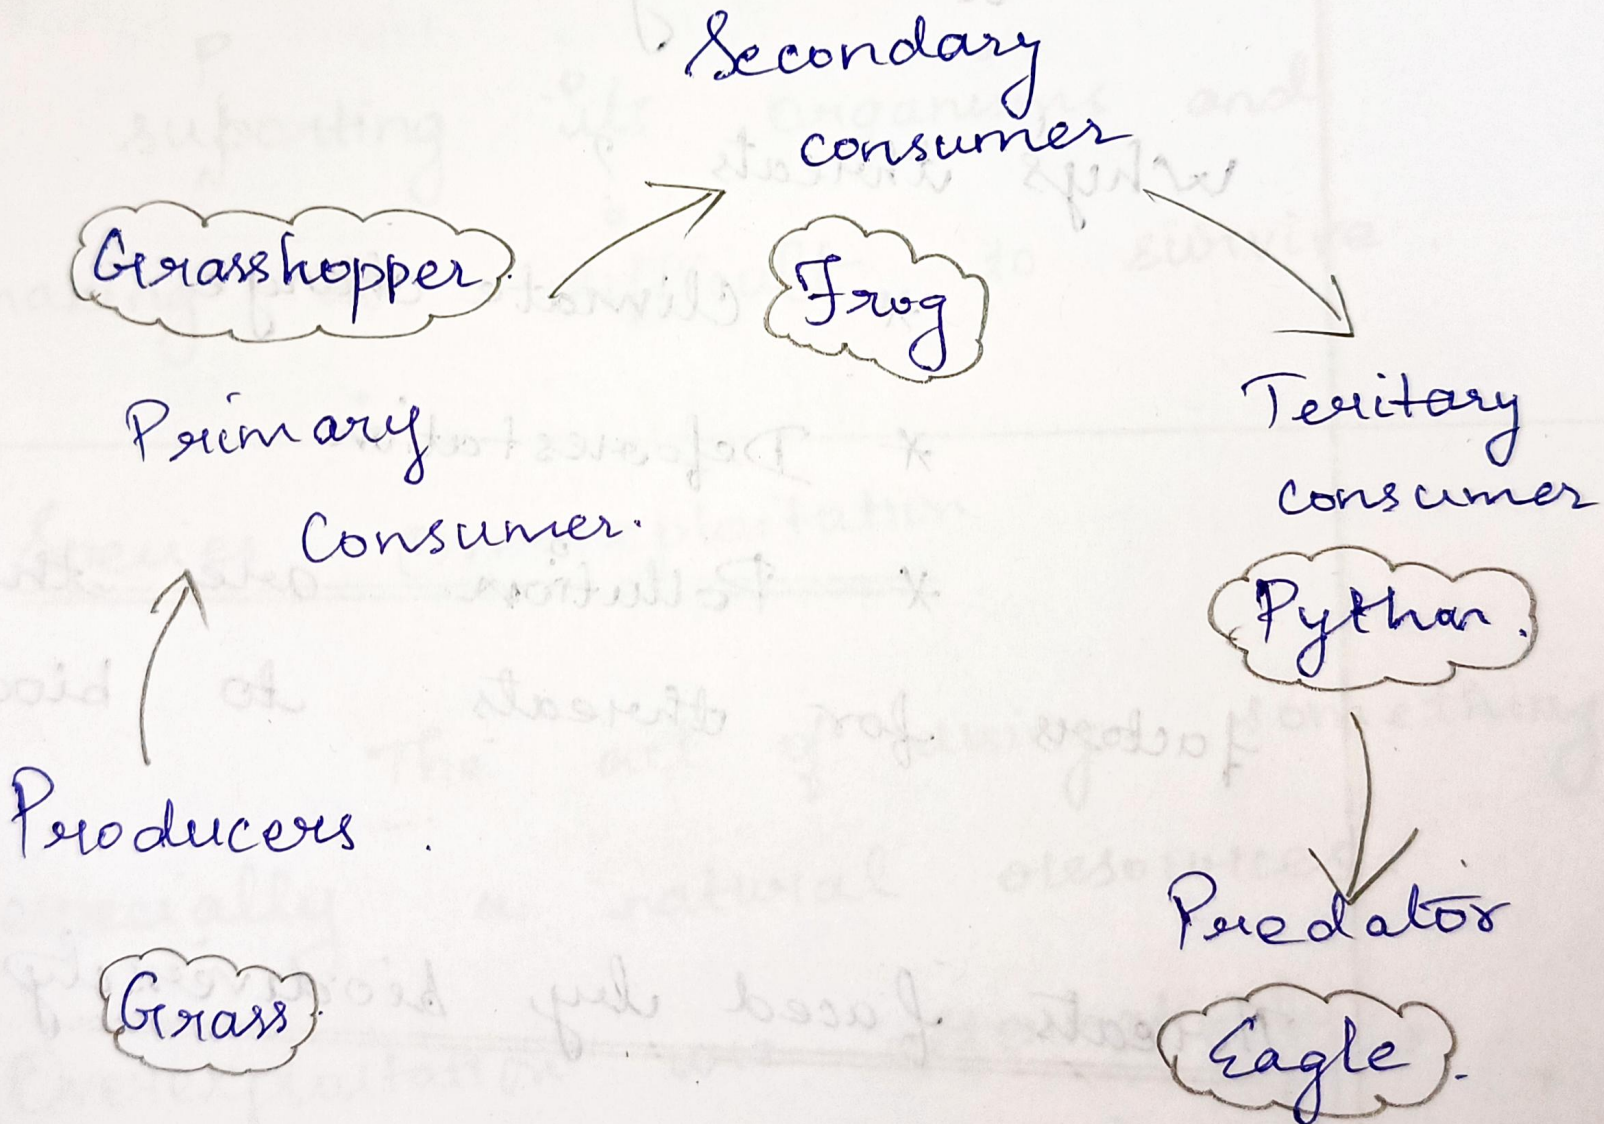 Secondary
consumer
Grasshopper.
Frog
Primary
Consumer.
Teritary
consumer
Python.
Producers.
Predator
Grass
Eagle.